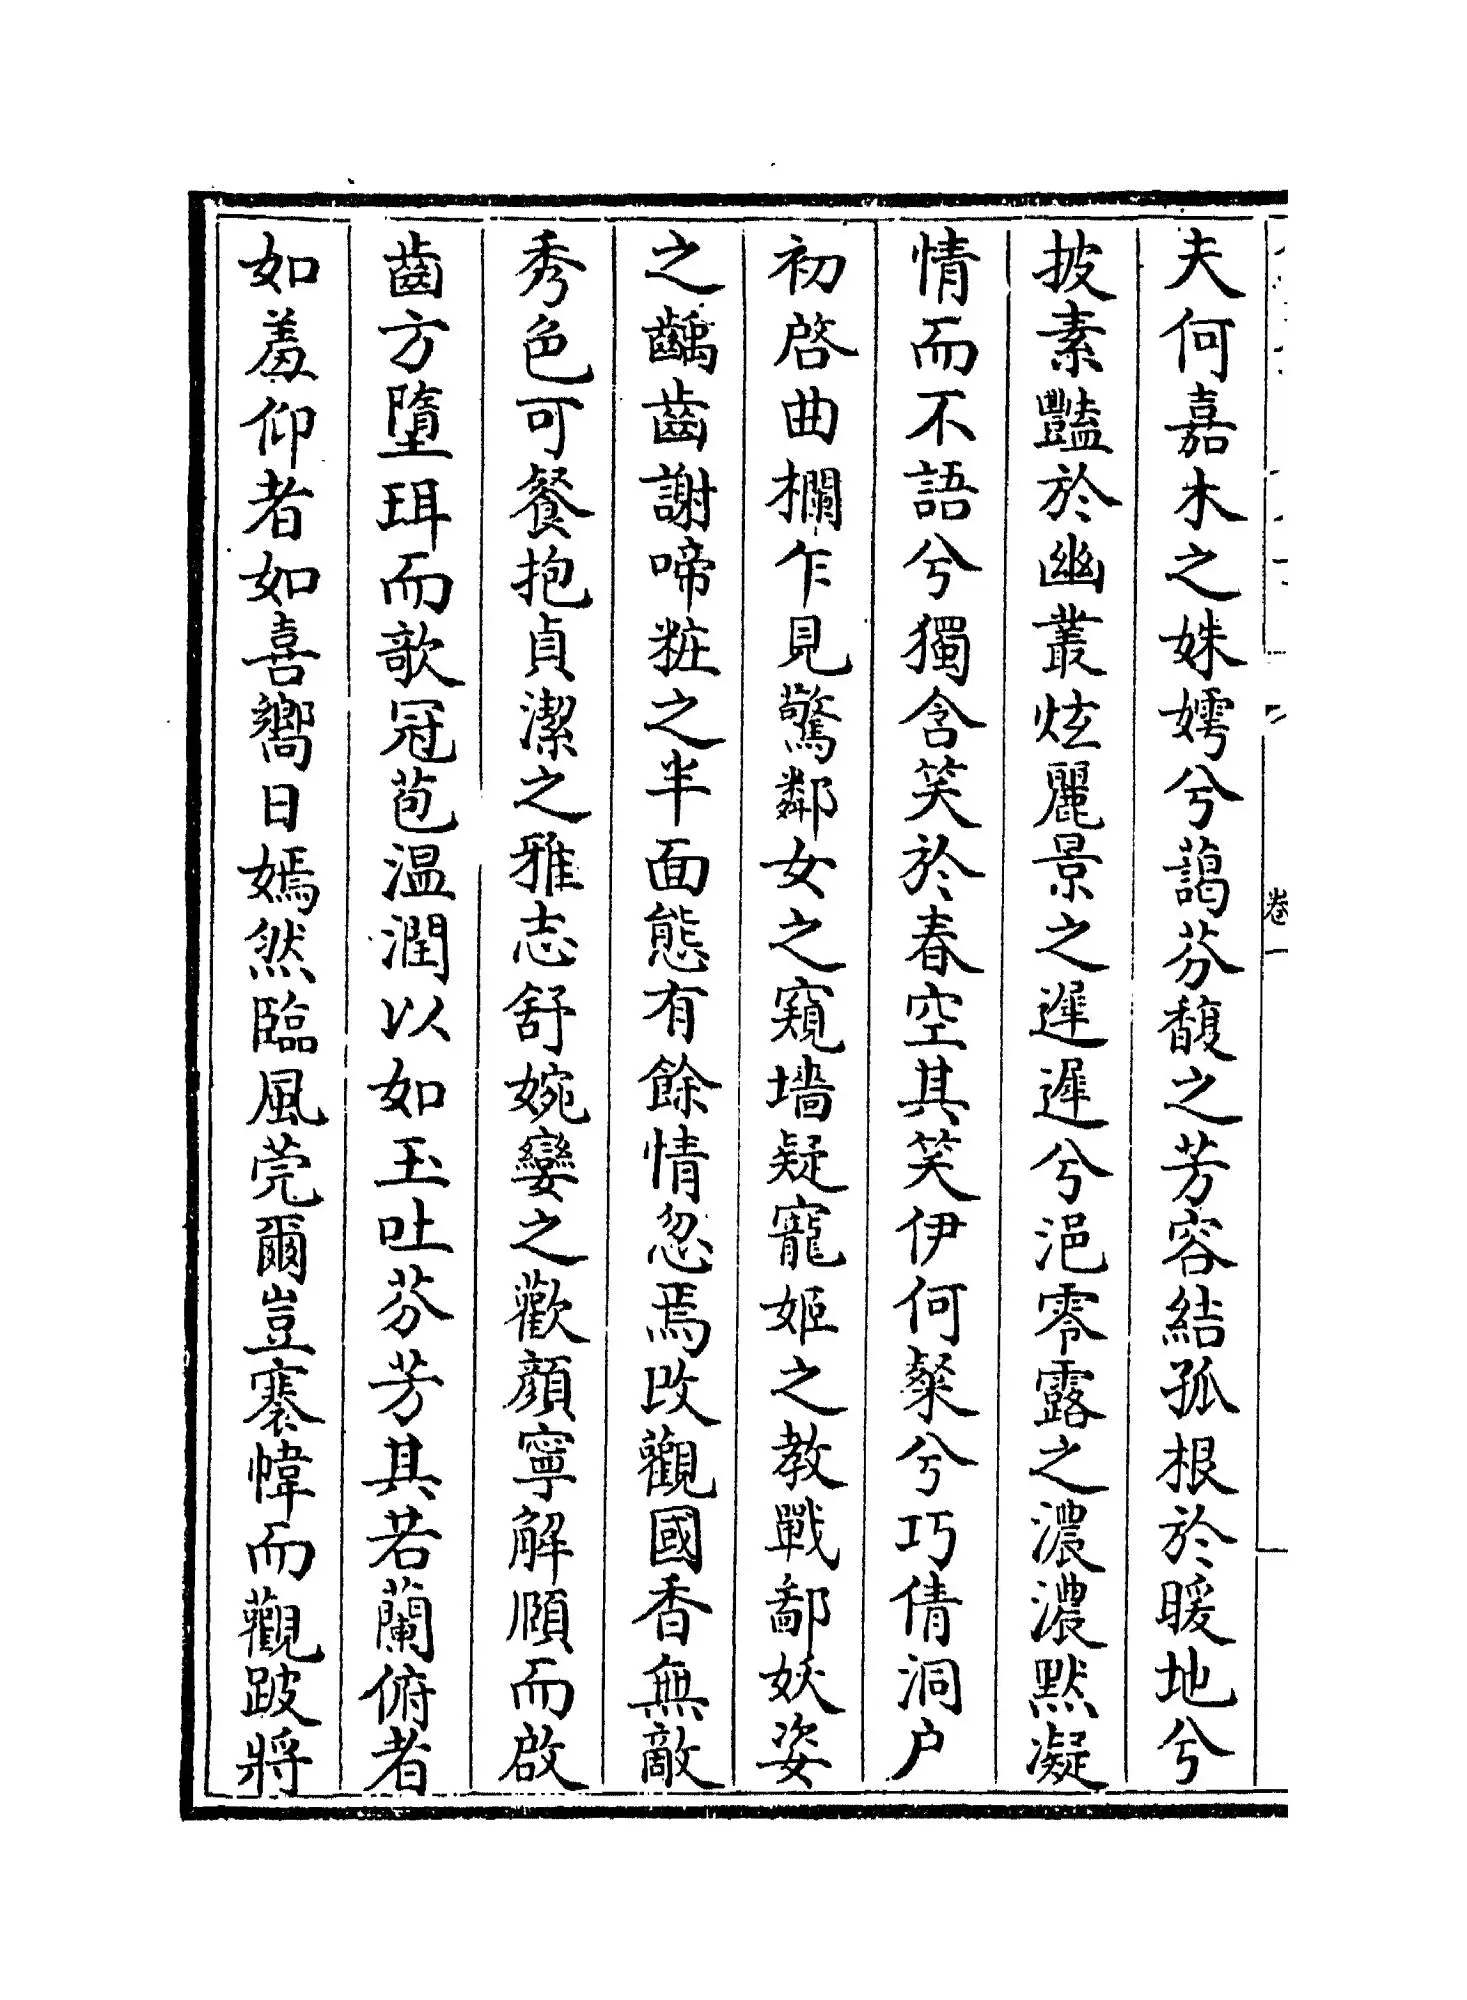 夫何嘉木之姝嫮兮藹芬馥之芳容結孤根於暖地兮
披素豔於幽叢炫麗景之遲遲兮浥零露之濃濃黙凝
情而不語兮獨含笑於春空其笑伊何粲兮巧倩洞户
初啓曲欄乍見驚鄰女之窺墻疑寵姬之教戰鄙妖姿
之齲齒謝啼粧之半面態有餘情忽焉改觀國香無敵
秀色可餐抱貞潔之雅志舒婉孌之歡顔寧解頤而啟
齒方墮珥而歌冠苞温潤以如玉吐芬芳其若蘭俯者
如羞仰者如喜嚮日嫣然臨風莞爾豈褰幃而觀跛將
卷一